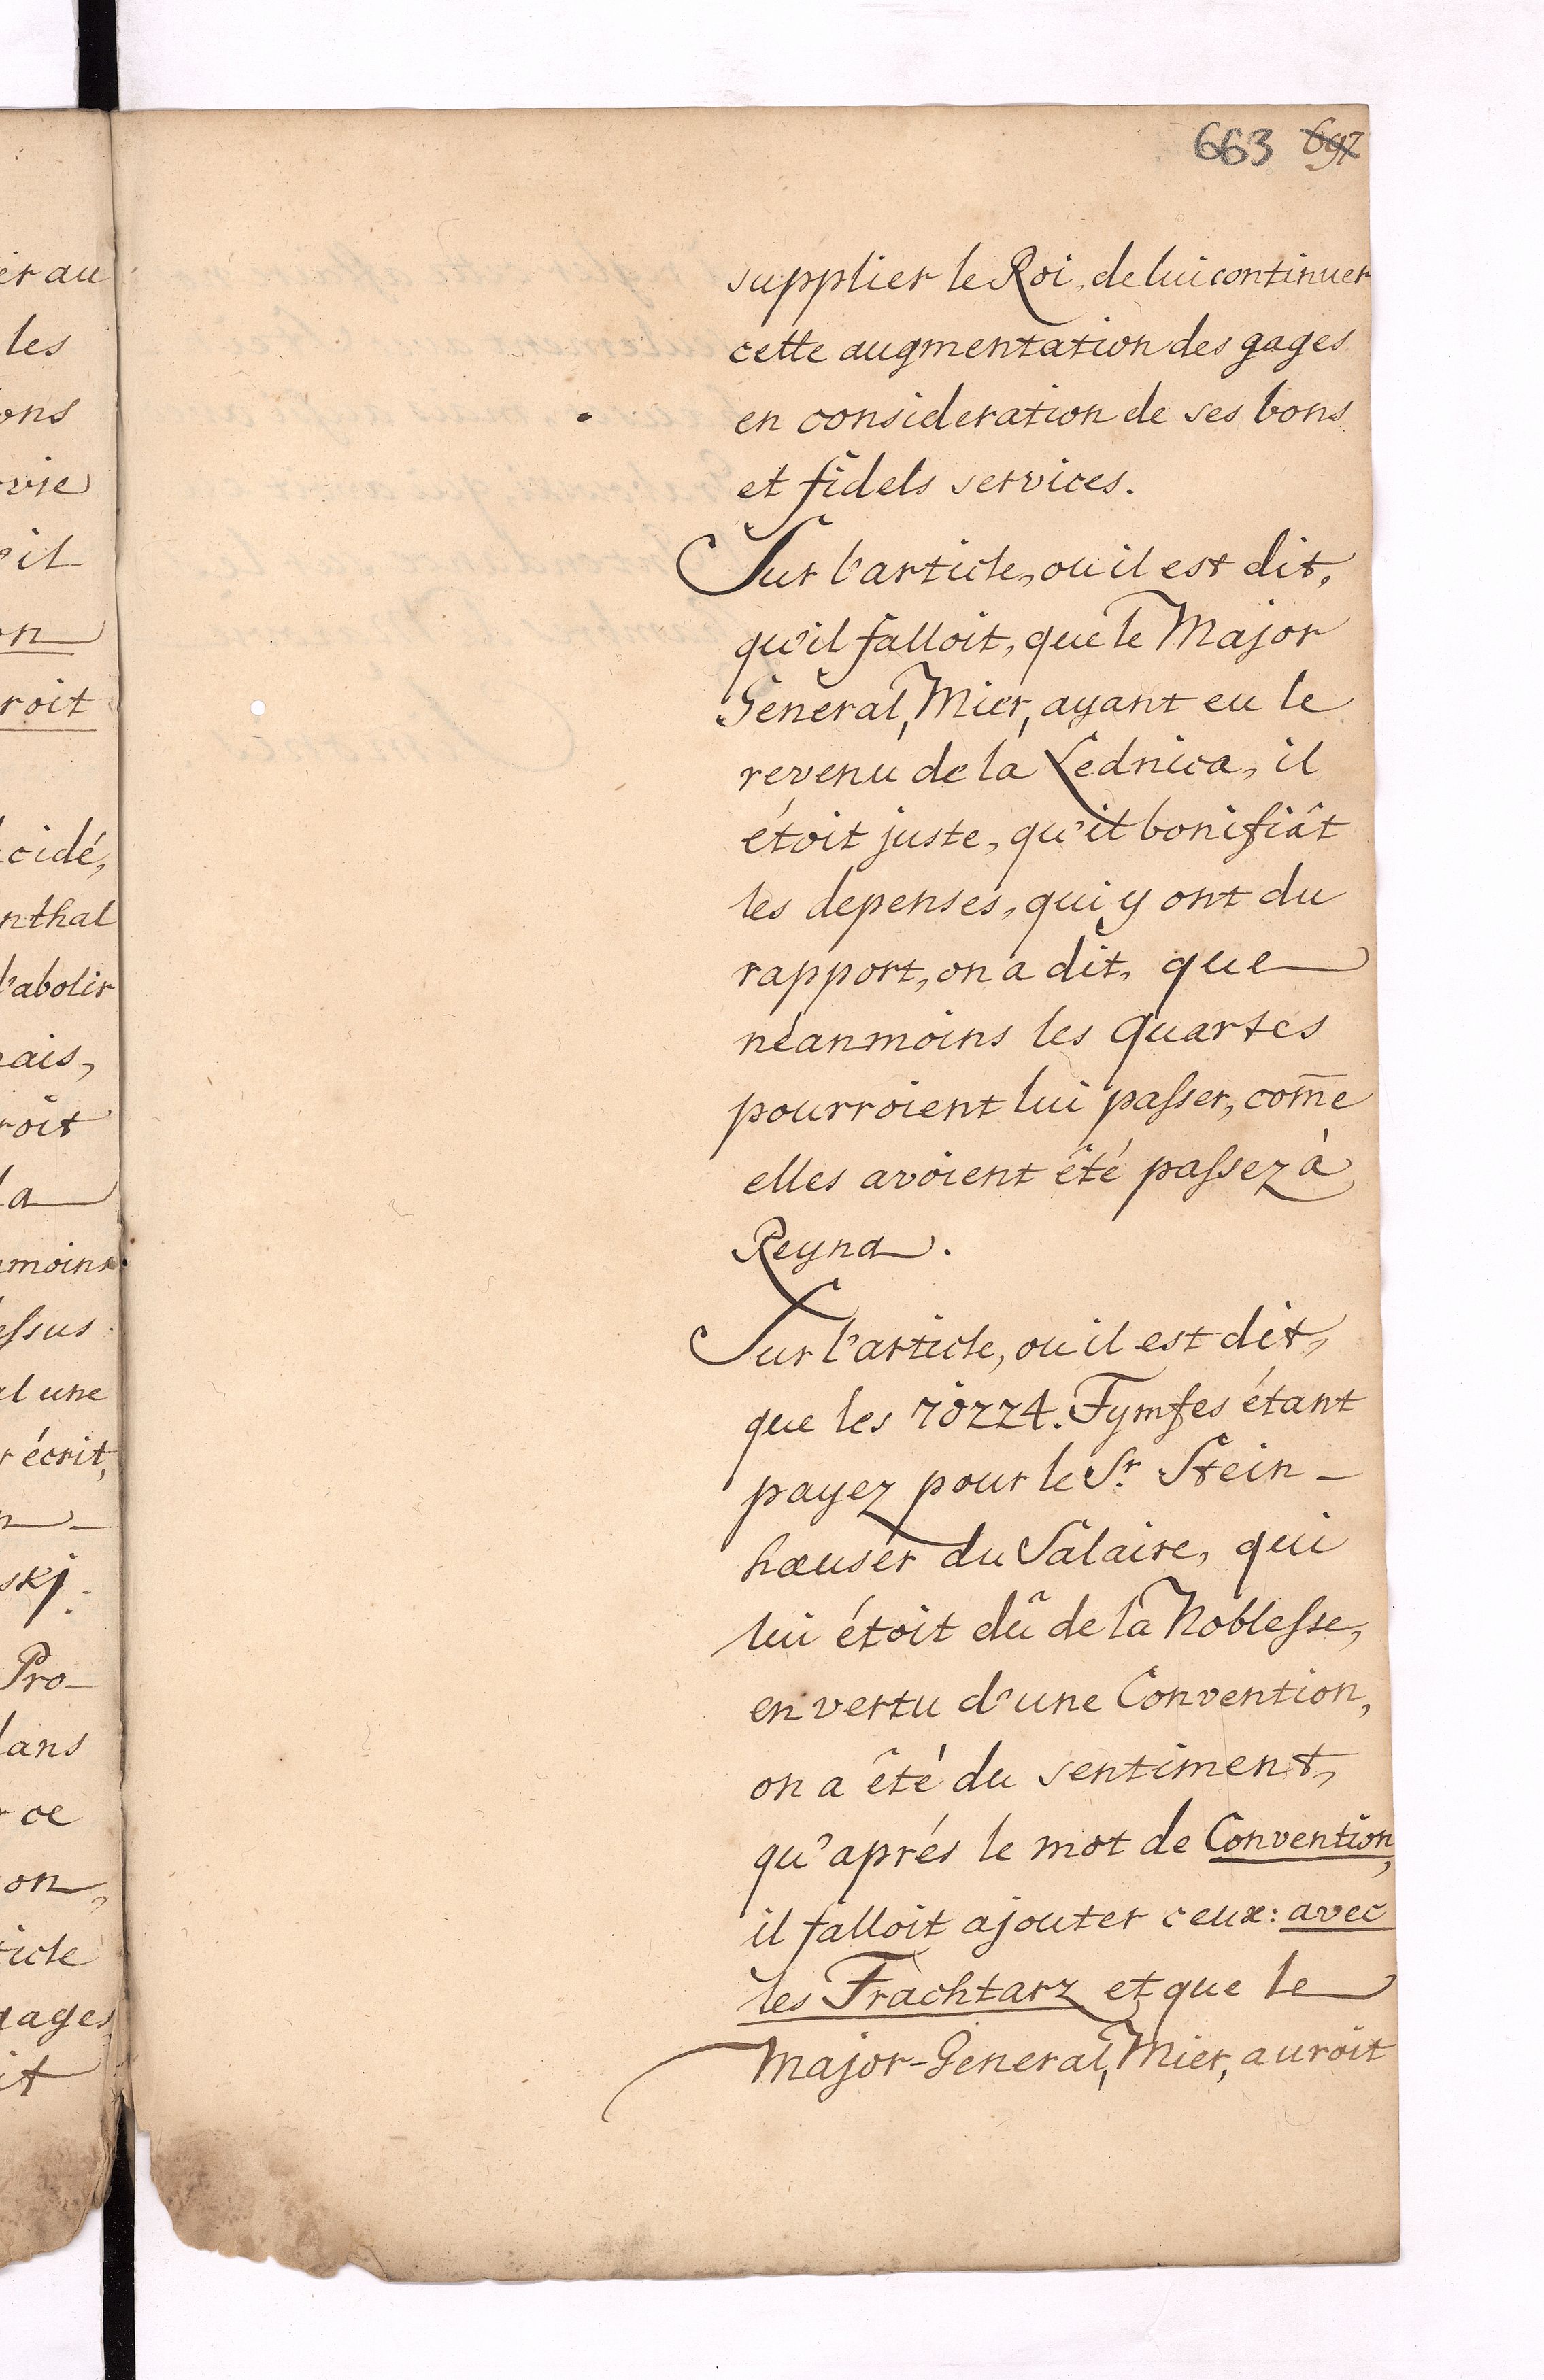 er au
les
ons
vie
'il
on
roit
cidé,
nthal
l'abolir
ais,
roit
la
moins
essus
al une
r écrit,
skj.
Pro-
dans
ce
on,
icle
gages
it
663 697
supplier le Roi, de lui continuer
cette augmentation des gages
en consideration de ses bons
et fidels services.
Sur l'article, ou il est dit,
qu'il falloit, que le Major
General, Mier, ayant eu le
revenu de la Lednica, il
étoit juste, qu'il bonifiât
les depenses, qui y ont du
rapport, on a dit, que
néanmoins les quartes
pourroient lui passer, com̄e
elles avoient êté passez à
Reyna.
Sur l'article, ou il est dit,
que les Tymfes étant
payez pour le Sr. Stein-
hæuser du Salaire, qui
lui étoit dû de la Noblesse,
en vertu d'une Convention,
on a êté du sentiment,
qu'aprés le mot de Convention,
il falloit ajouter ceux: avec
les Frachtarz et que le
Major-General, Mier, auroit